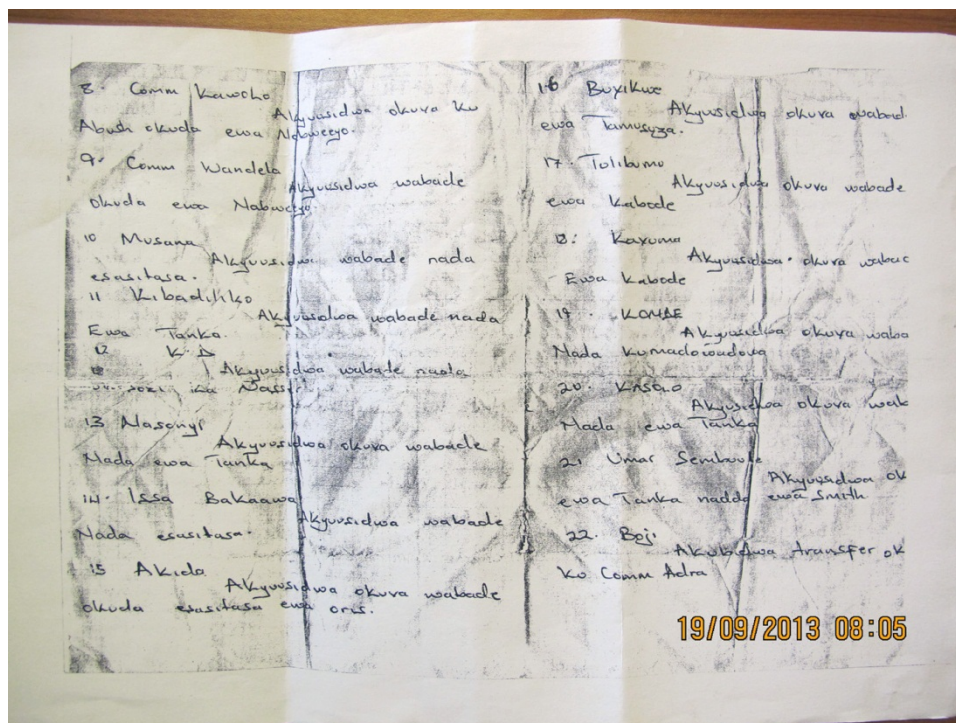 8. Comm Kawoho
Akyuusidwa okuva ku
Abush okuda ewa Nabweeyo.
9. Comm Wandela
Akyuusidwa wabade
okuda ewa Nabweeyo
10 Musana
Akyuusidwa wabade nada
esasitasa.
11 Kibadihiko
Akyusidwa wabade nada
Ewa Tanka.
12 K.D
Akyuusidwa wabade nada
ku Nassir
13 Nasonyi
Akyuusidwa okuva wabade
Nada ewa Tanka
14. Issa Bakaawa
Akyuusidwa wabade
Nada esasitasa.
15 Akida
Akyuusidwa okuva wabade
okuda esasitasa ewa oris.
16 Buxikwe
Akyuusidwa okuva wabad
ewa Tamusuza.
17. Tulibumu
Akyuusidwa okuva wabade
ewa Kabode
18. Kaxuma
Akyuusidwa. okuva wabac
Ewa Kabode
19. KOMAE
Akyuusidwa okuva waba
Nada
20.
Akyusidwa okuva wab
Nada ewa Tanka
21 Umar Sembuule
Akyuusidwa ok
ewa Tanka nadda ewa Smith
22. Boji
Akubidwa transfer ok
ku Comm Adra
19/09/2013 08:05